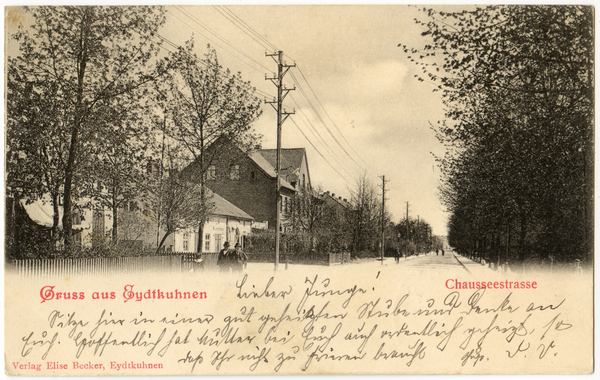 Gruss aus Eydtkuhnen
Chausseestrasse
Lieber Junge!
Sitze hier in einer gut geheizten Stube und denke an
Euch. Hoffentlich hat Mutter bei Euch auch ordentlich geheizt, so
daß Ihr nicht zu frieren braucht. D. V.
Verlag Elise Becker, Eydtkuhnen